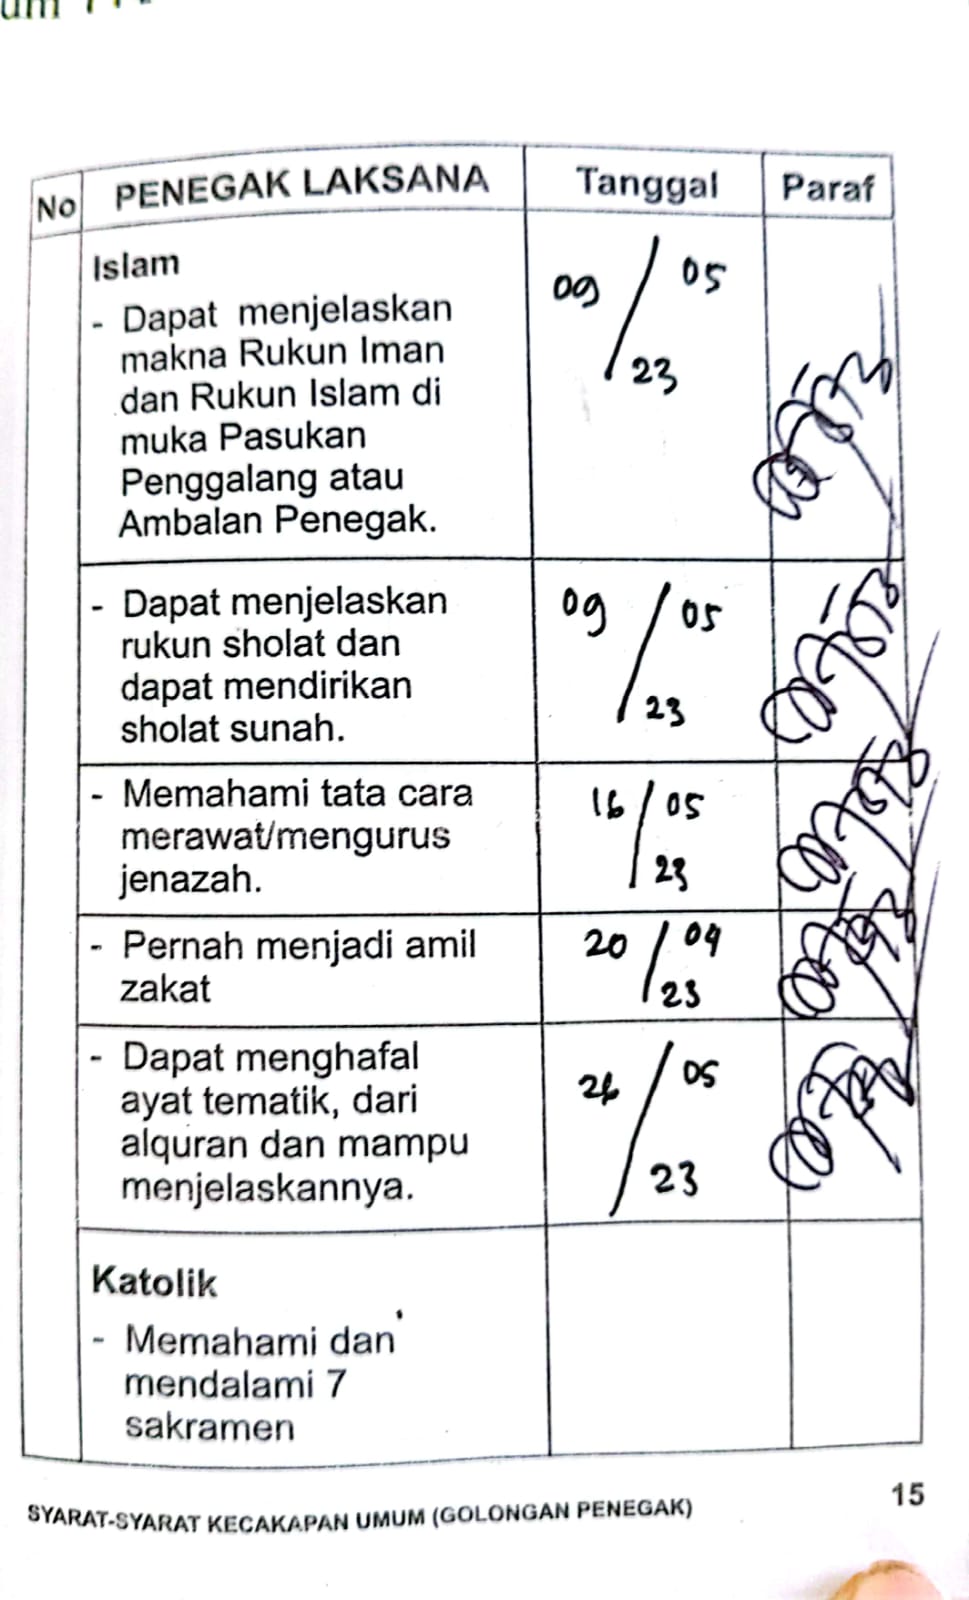 No PENEGAK LAKSANA Tanggal Paraf
Islam
- Dapat menjelaskan
makna Rukun Iman
dan Rukun Islam di
muka Pasukan
Penggalang atau
Ambalan Penegak.
09 / 05
23
- Dapat menjelaskan
rukun sholat dan
dapat mendirikan
sholat sunah.
09 / 05
23
- Memahami tata cara
merawat/mengurus
jenazah.
16 / 05
23
- Pernah menjadi amil
zakat
20 / 04
23
- Dapat menghafal
ayat tematik, dari
alquran dan mampu
menjelaskannya.
/ 05
23
Katolik
- Memahami dan
mendalami 7
sakramen
SYARAT-SYARAT KECAKAPAN UMUM (GOLONGAN PENEGAK)
15